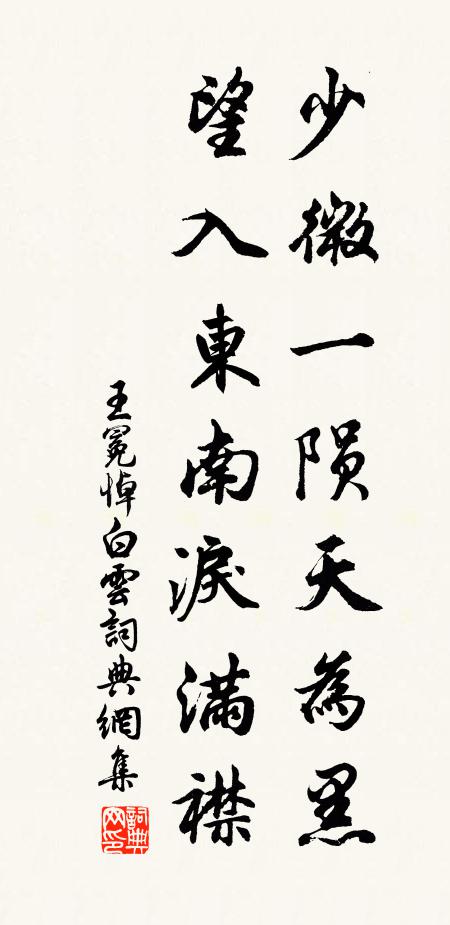 少微一陨天為黑
望入東南淚滿襟
王冕悼白雲詞典網集
詞典
网印